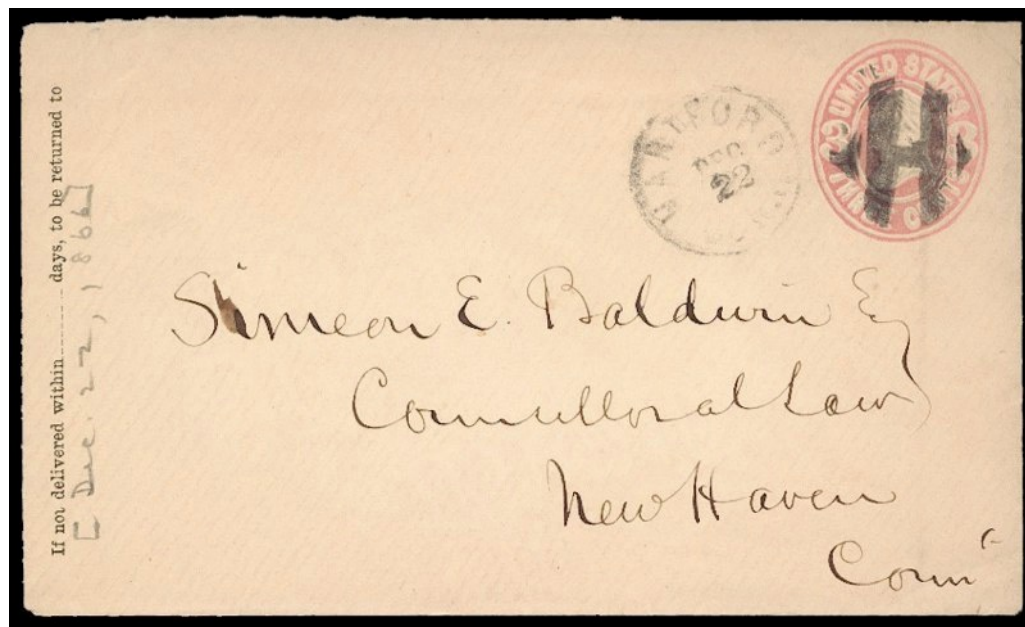 If not delivered within ........ days, to be returned to
[Dec. 22, 1866]
HARTFORD
DEC
22
UNITED STATES
H
Simeon E. Baldwin Eq
Counsellor at Law
New Haven
Conn